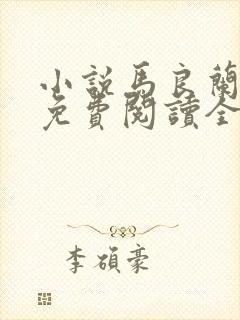 小說馬良蘭
免費閱讀全
李碩豪